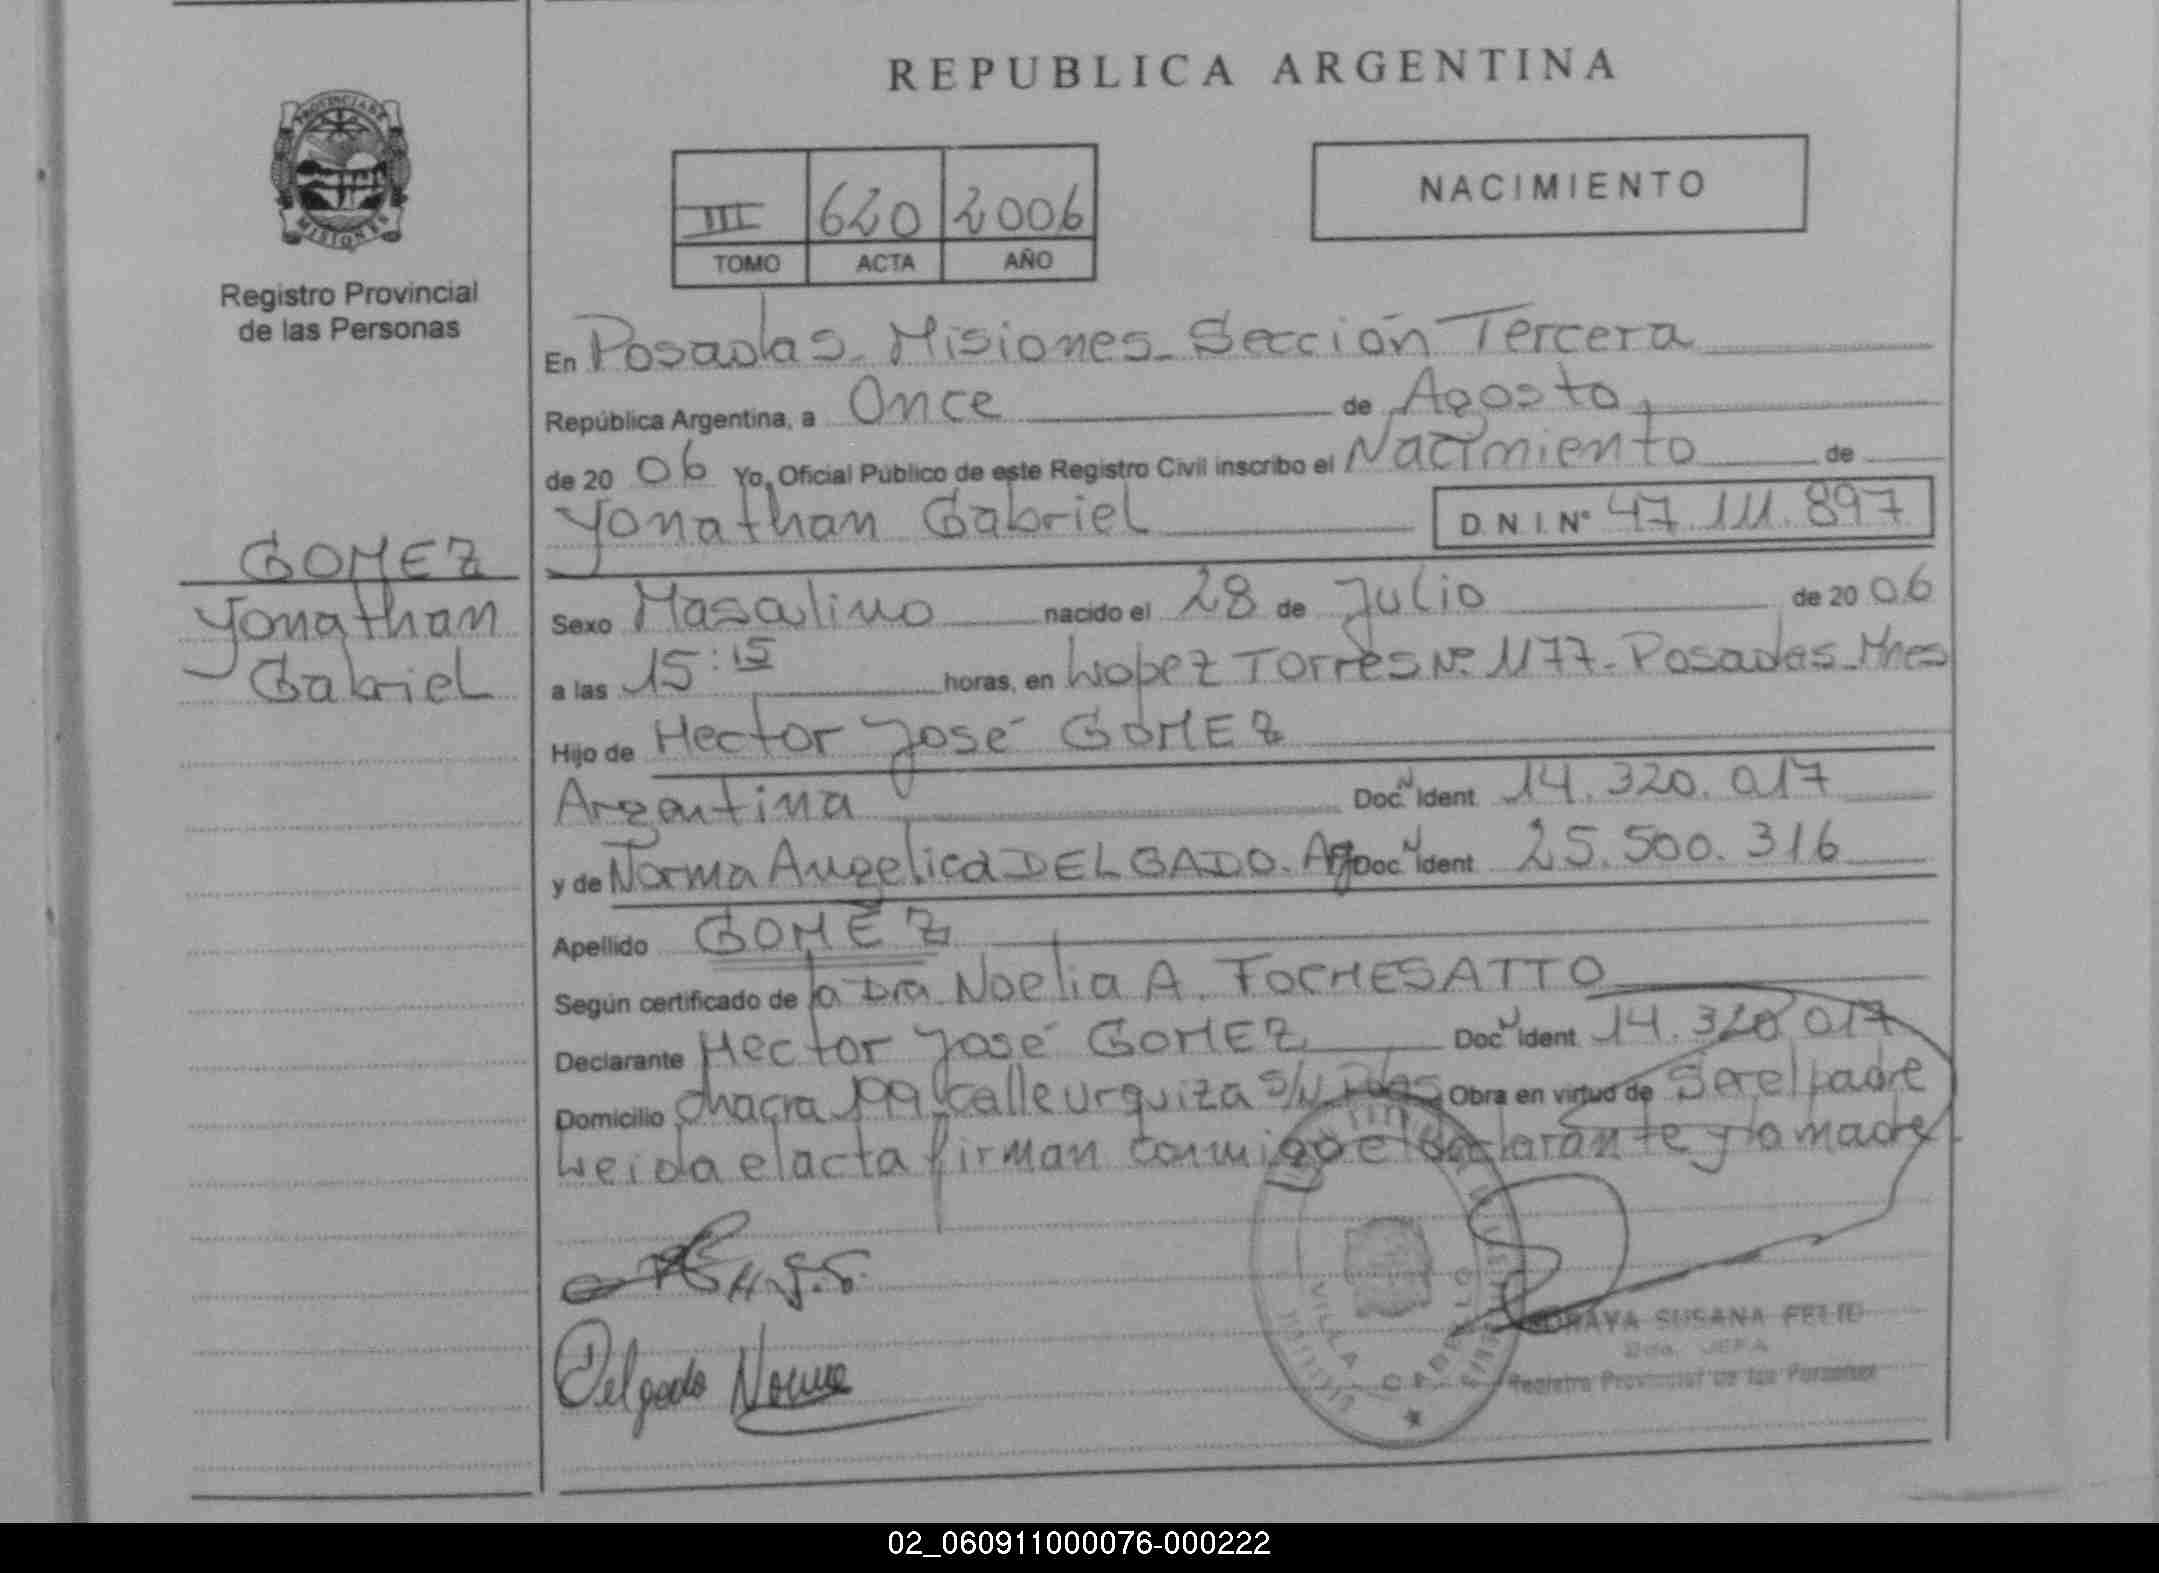 REPUBLICA ARGENTINA
PROVINCIA DE
MISIONES
Registro Provincial
de las Personas
III 620 2006
TOMO ACTA AÑO
NACIMIENTO
En Posadas - Misiones - Sección Tercera
República Argentina, a Once de Agosto,
de 20 06 Yo, Oficial Público de este Registro Civil inscribo el Nacimiento de
Yonathan Gabriel D.N.I.Nº 47.111.897
GOMEZ
Yonathan
Gabriel
Sexo Masculino nacido el 28 de Julio de 20 06
a las 15:15 horas, en Lopez Torres Nº 1177- Posadas-Mnes
Hijo de Hector José GOMEZ
Argentina Doc. N Ident 14.320.017
y de Norma Angelica DELGADO. Arg Doc. N Ident 25.500.316
Apellido GOMEZ
Según certificado de la Dra. Noelia A. FOCHESATTO
Declarante Hector José GOMEZ Doc. N Ident 14.320.017
Domicilio chacra 199 calle urquiza s/N Pdas Obra en virtud de ser el padre
Leida el acta firman conmigo el declarante y la madre
H.J.G.
Delgado Norma
VILLA CABELLO
SORAYA SUSANA FELIP
2da. JEFA
Registro Provincial de las Personas
02_060911000076-000222